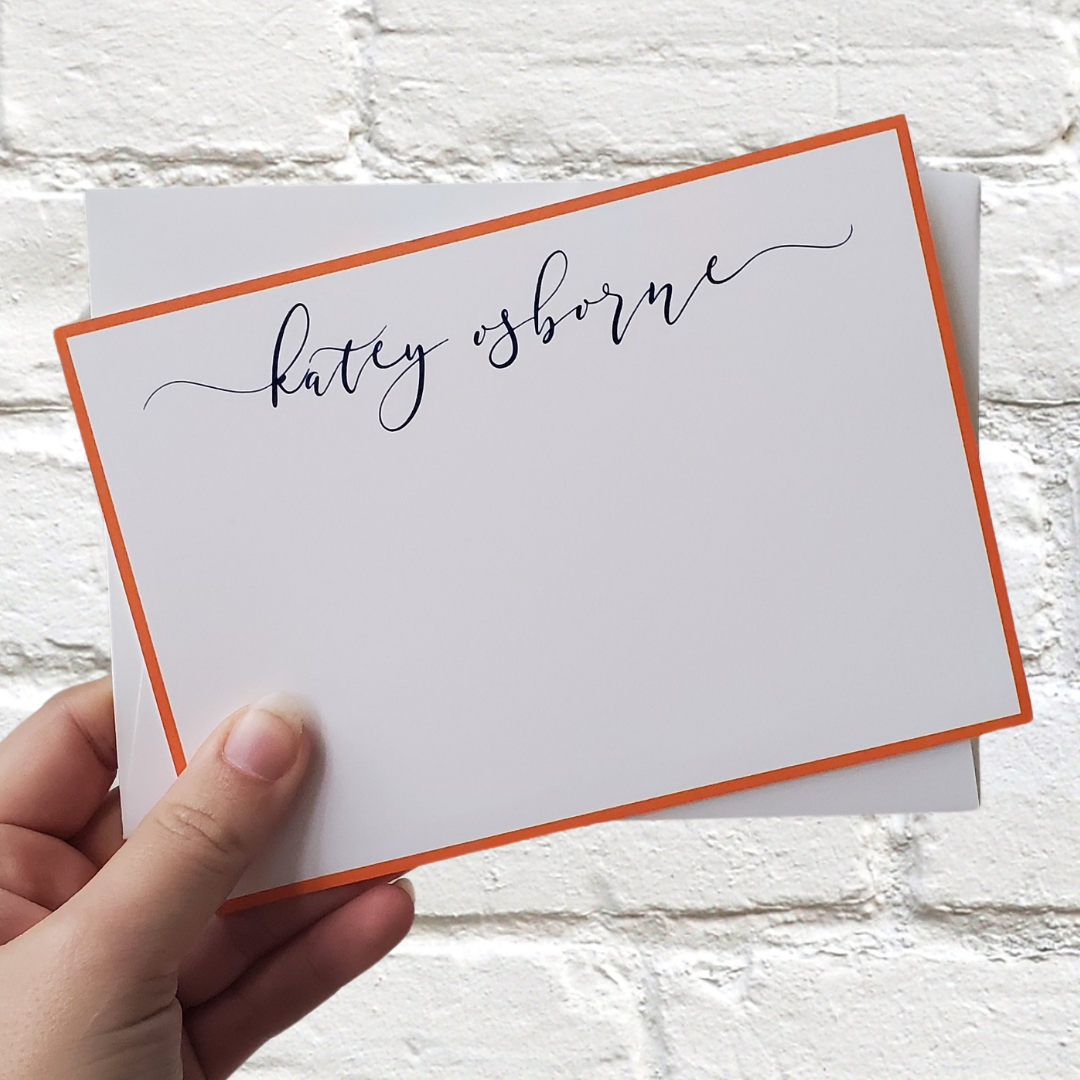 katey osborne